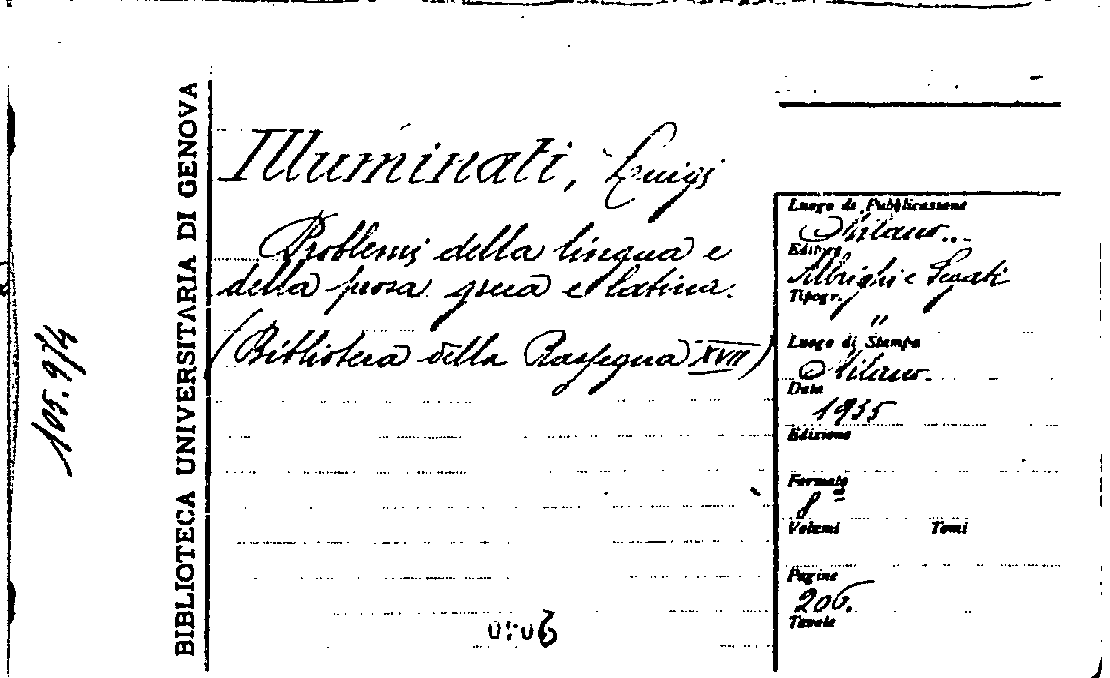 BIBLIOTECA UNIVERSITARIA DI GENOVA
105.9/4
Illuminati, Luigi
Problemi della lingua e
della prosa greca e latina.
(Biblioteca della Rassegna XVII)
Luogo di Pubblicazione
Milano
Editore
Albrighi e Segati
Tipogr.
"
Luogo di Stampa
Milano.
Data
1935
Edizione
Formato
8º
Volumi Tomi
Pagine
206.
Tavole